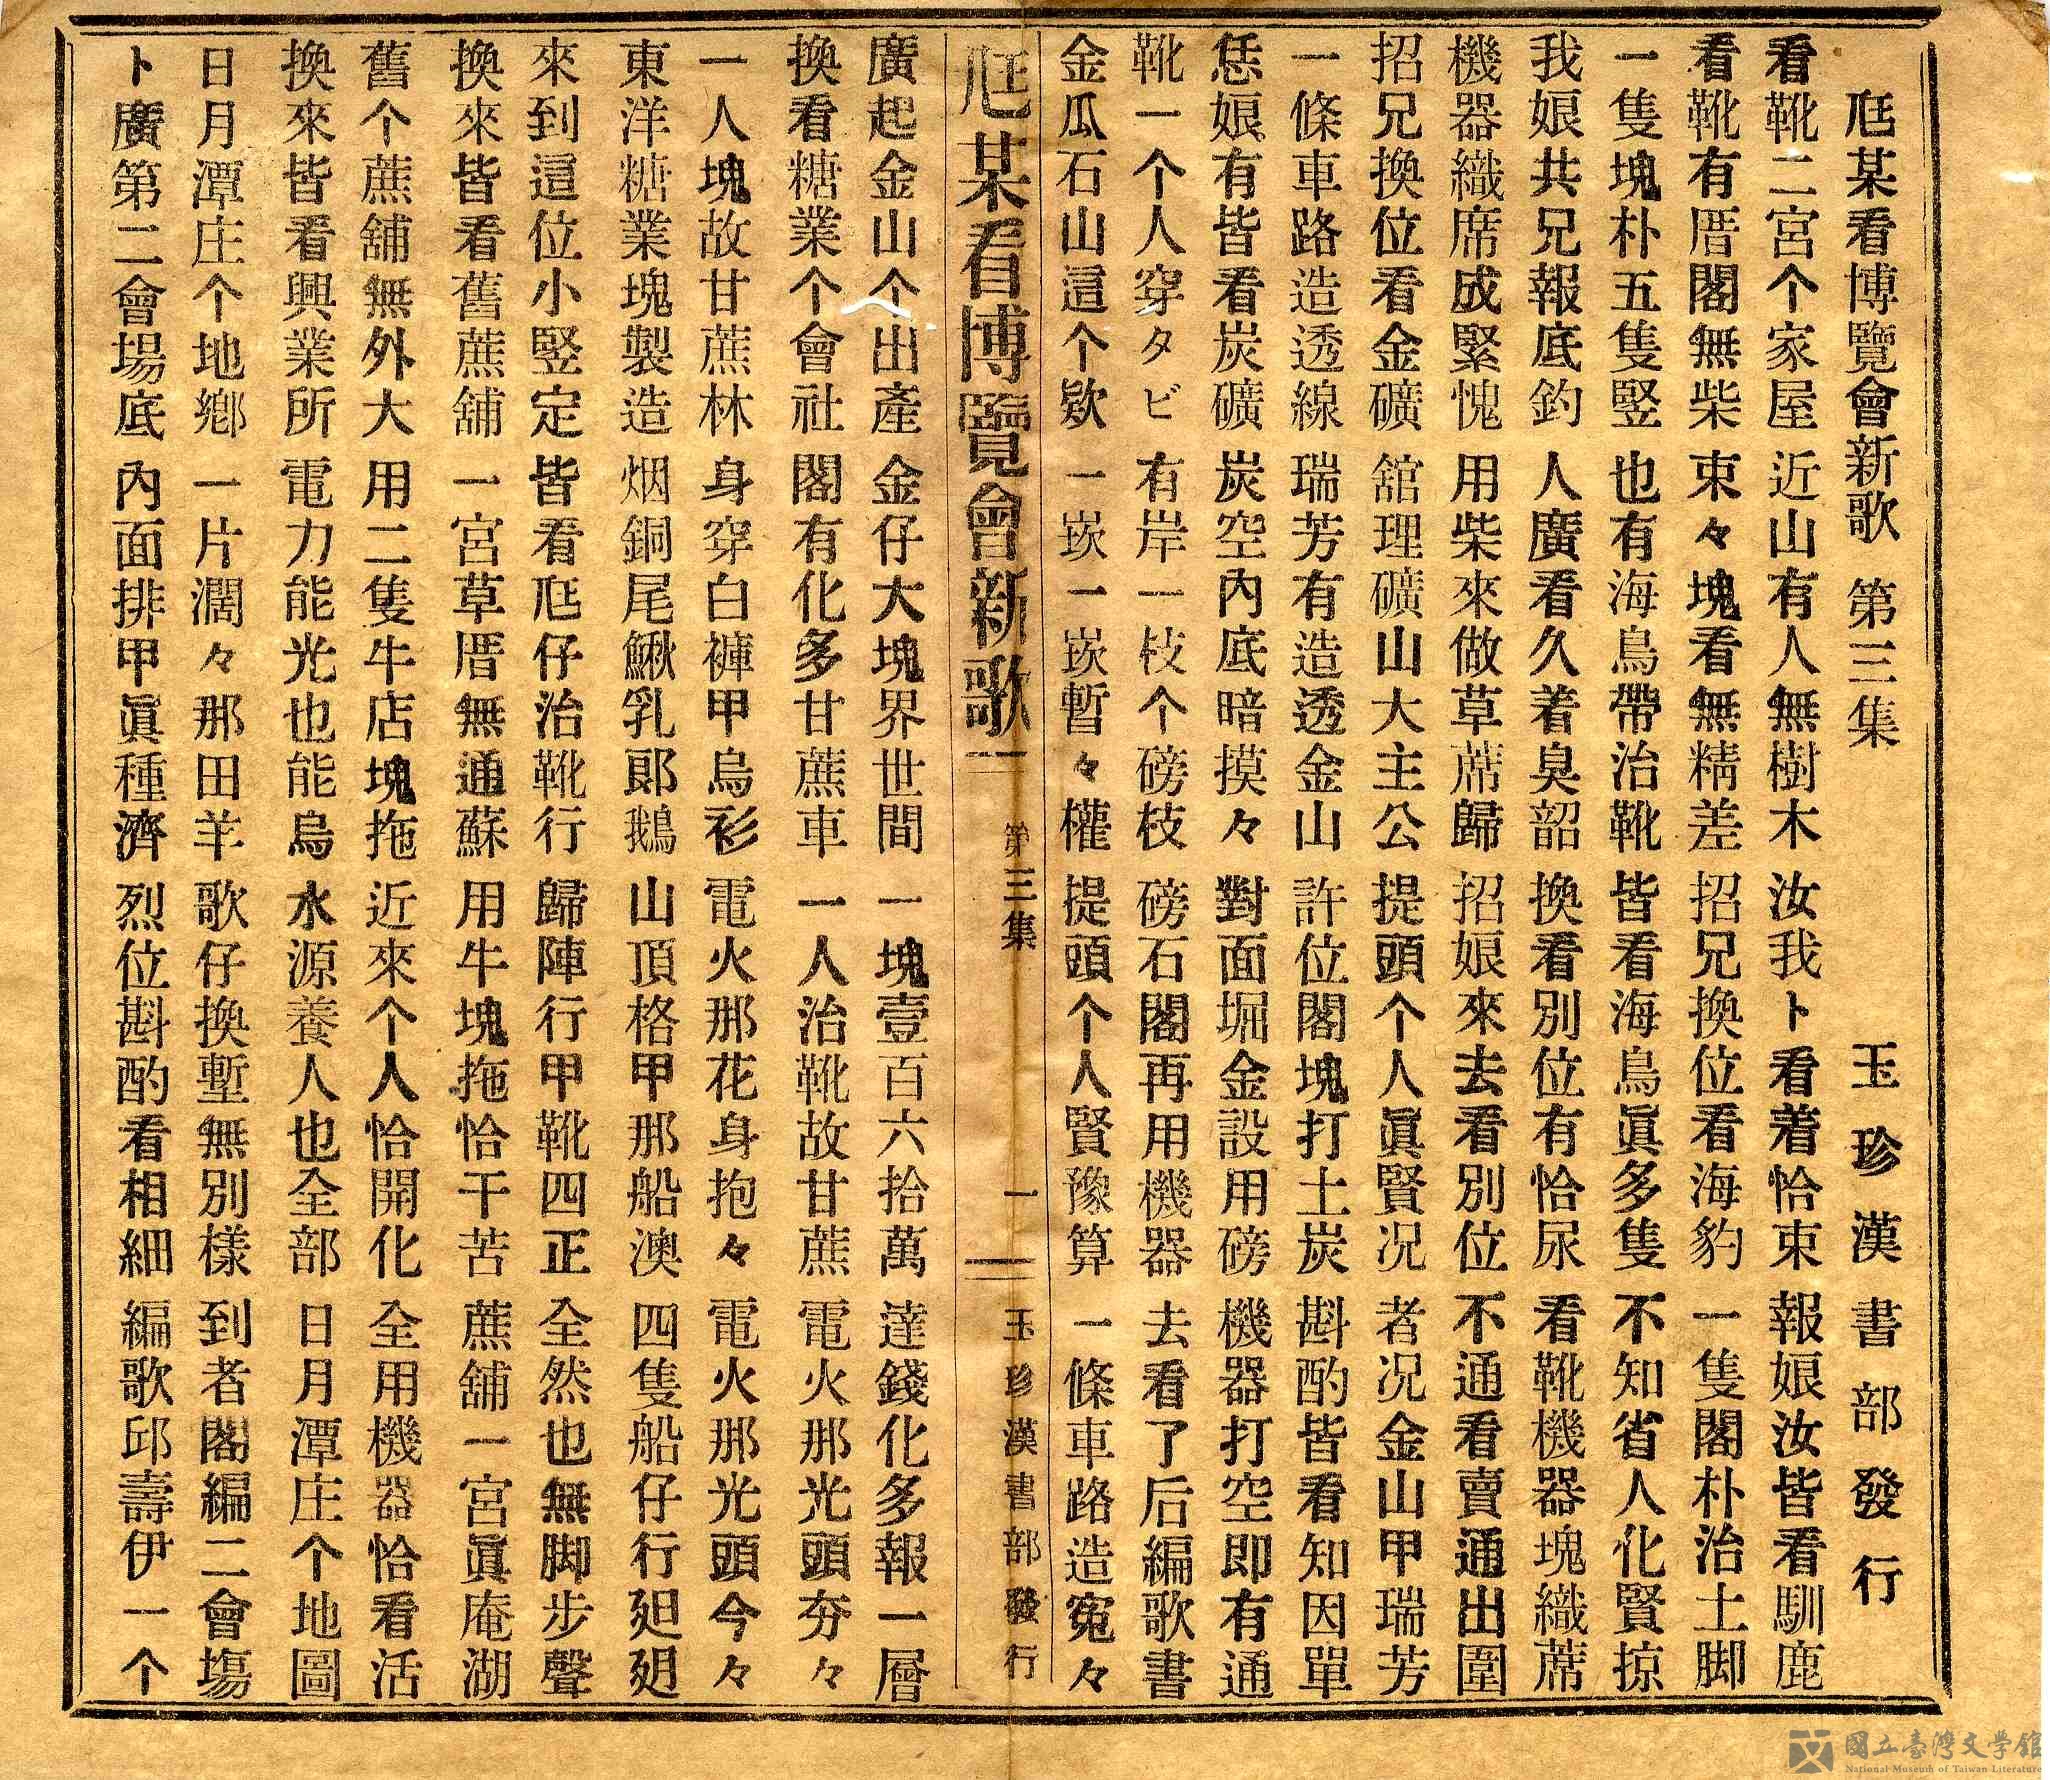 尫某看博覽會新歌 第三集 玉珍漢書部發行
看靴二宮个家屋 近山有人無樹木 汝我卜看着恰束 報娘汝皆看馴鹿
看靴有厝閣無柴 束々塊看無精差 招兄換位看海豹 一隻閣朴治土脚
一隻塊朴五隻竪 也有海鳥帶治靴 皆看海鳥眞多隻 不知省人化賢掠
我娘共兄報底釣 人廣看久着臭韶 換看別位有恰尿 看靴機器塊織蓆
機器織席成緊愧 用柴來做草蓆歸 招娘來去看別位 不通看賣通出圍
招兄換位看金礦 舘理礦山大主公 提頭个人眞賢況 者況金山甲瑞芳
一條車路造透線 瑞芳有造透金山 許位閣塊打土炭 斟酌皆看知因單
恁娘有皆看炭礦 炭空內底暗摸々 對面堀金設用磅 機器打空即有通
靴一个人穿タビ 有岸一枝个磅枝 磅石閣再用機器 去看了后編歌書
金瓜石山這个欵 一崁一崁暫々權 提頭个人賢豫算 一條車路造寃々
尫某看博覽會新歌 第三集 一 玉珍漢書部發行
廣起金山个出產 金仔大塊界世間 一塊壹百六拾萬 達錢化多報一層
換看糖業个會社 閣有化多甘蔗車 一人治靴故甘蔗 電火那光頭夯々
一人塊故甘蔗林 身穿白褲甲烏衫 電火那花身抱々 電火那光頭今々
東洋糖業塊製造 烟銅尾鰍乳郞鵝 山頂格甲那船澳 四隻船仔行廻廻
來到這位小竪定 皆看尫仔治靴行 歸陣行甲靴四正 全然也無脚步聲
換來皆看舊蔗舖 一宮草厝無通蘇 用牛塊拖恰干苦 蔗舖一宮眞庵湖
舊个蔗舖無外大 用二隻牛店塊拖 近來个人恰開化 全用機器恰看活
換來皆看興業所 電力能光也能烏 水源養人也全部 日月潭庄个地圖
日月潭庄个地鄉 一片濶々那田羊 歌仔換塹無別樣 到者閣編二會塲
卜廣第二會場底 內面排甲眞種濟 烈位斟酌看相細 編歌邱壽伊一个
國立臺灣文學館
National Museum of Taiwan Literature